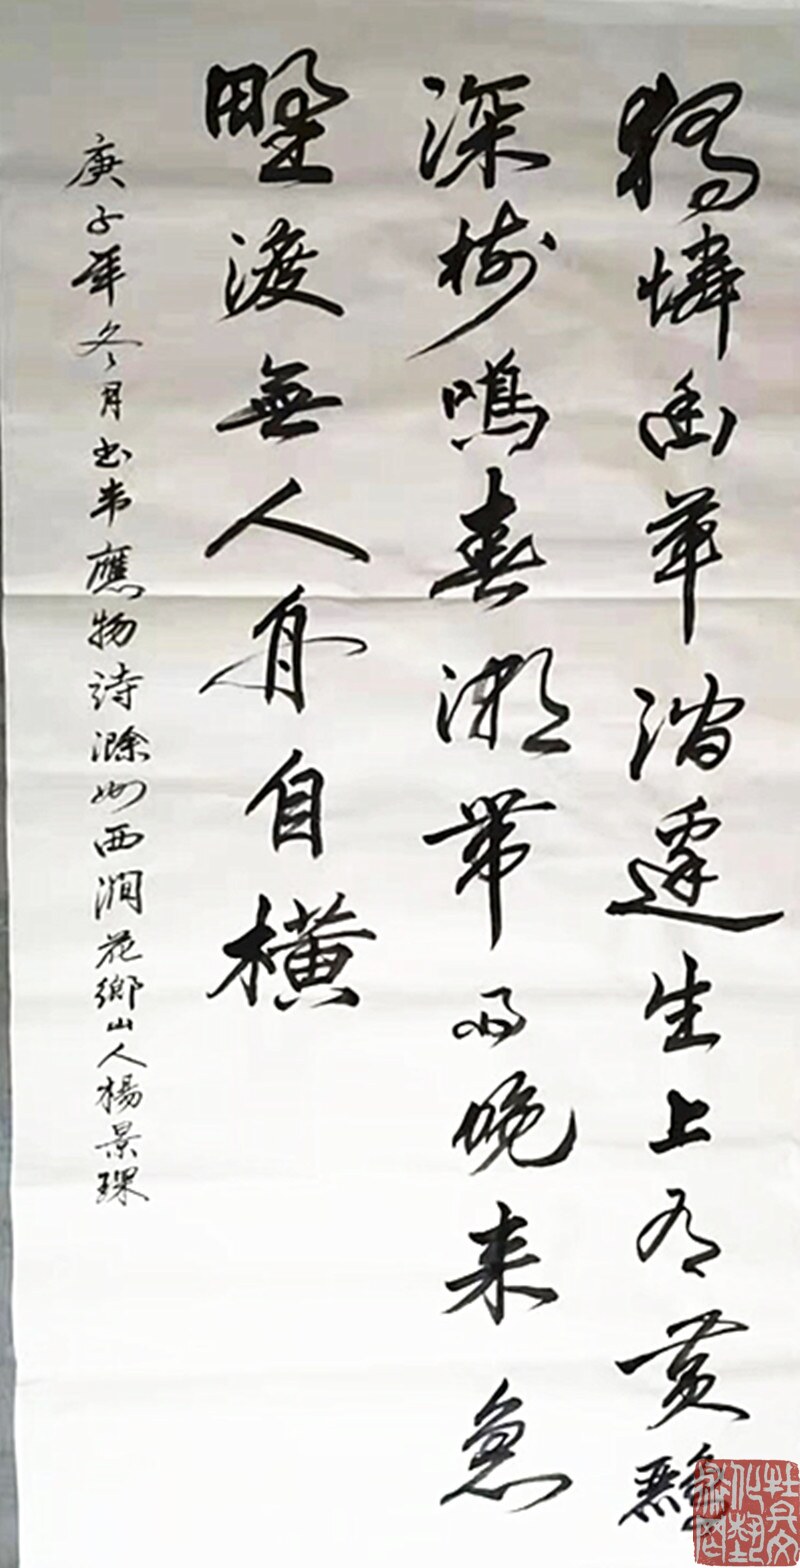 獨憐幽草澗邊生上有黃鸝
深樹鳴春潮帶雨晚來急
野渡無人舟自橫
庚子年冬月书韦應物詩滁州西澗花鄉山人楊景琛